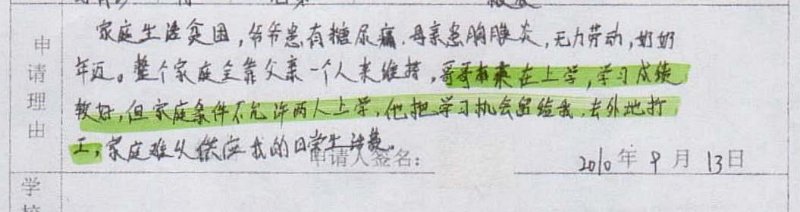 申请理由
家庭生活贫困，爷爷患有糖尿病，母亲患胸膜炎，无力劳动，奶奶
年迈。整个家庭全靠父亲一个人来维持，哥哥本来在上学，学习成绩
较好，但家庭条件不允许两人上学，他把学习机会留给我，去外地打
工，家庭难以供应我的日常生活费。
申请人签名：
2010年9月13日
学